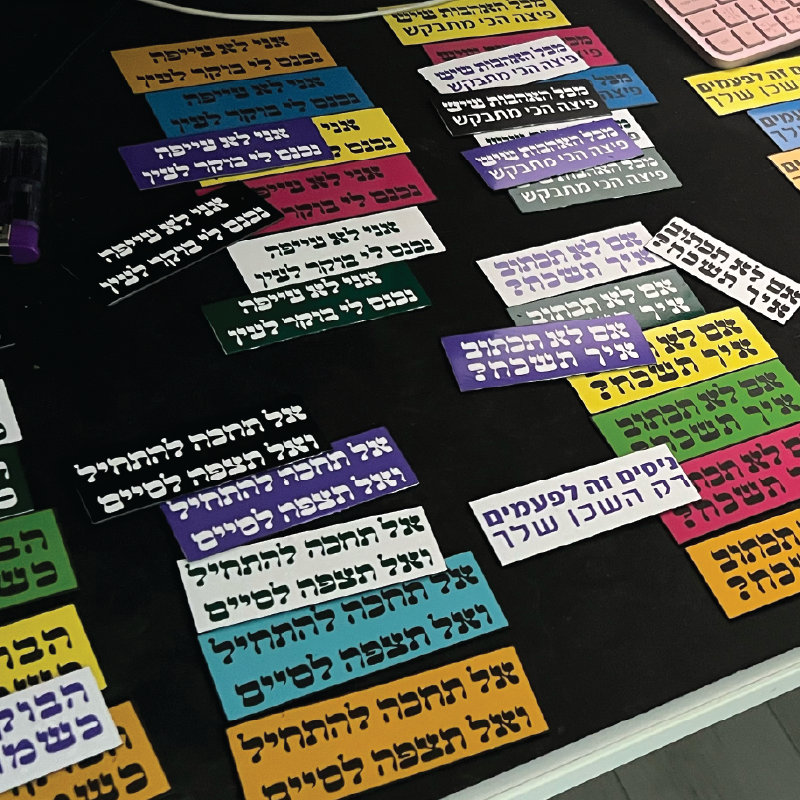 אני לא עייפה
נכנס לי בוקר לעין
אני לא עייפה
נכנס לי בוקר לעין
אני לא עייפה
נכנס לי בוקר לעין
אני
נכנס
אני לא עייפה
נכנס לי בוקר
אני לא עייפה
נכנס לי בוקר לעין
אני לא עייפה
נכנס לי בוקר לעין
אני לא עייפה
נכנס לי בוקר לעין
מכל האהבות שיש
פיצה הכי מתבקש
מכל האהבות שיש
מכל האהבות שיש
פיצה הכי מתבקש
מכל
פיצה
מכל האהבות שיש
פיצה הכי מתבקש
מכל האהבות שיש
פיצה הכי מתבקש
פיצה הכי מתבקש
זה לפעמים
השכן שלך
אם לא תכתוב
איך תשכח?
אם לא תכתוב
איך תשכח?
אם לא תכתוב
אם לא תכתוב
איך תשכח?
אם לא
איך תשכח?
אם לא תכתוב
איך תשכח?
לא תכתוב
תשכח?
תכתוב
ניסים זה לפעמים
רק השכן שלך
אל תחכה להתחיל
ואל תצפה לסיים
אל תחכה להתחיל
ואל תצפה לסיים
אל תחכה להתחיל
ואל תצפה לסיים
אל תחכה להתחיל
ואל תצפה לסיים
אל תחכה להתחיל
ואל תצפה לסיים